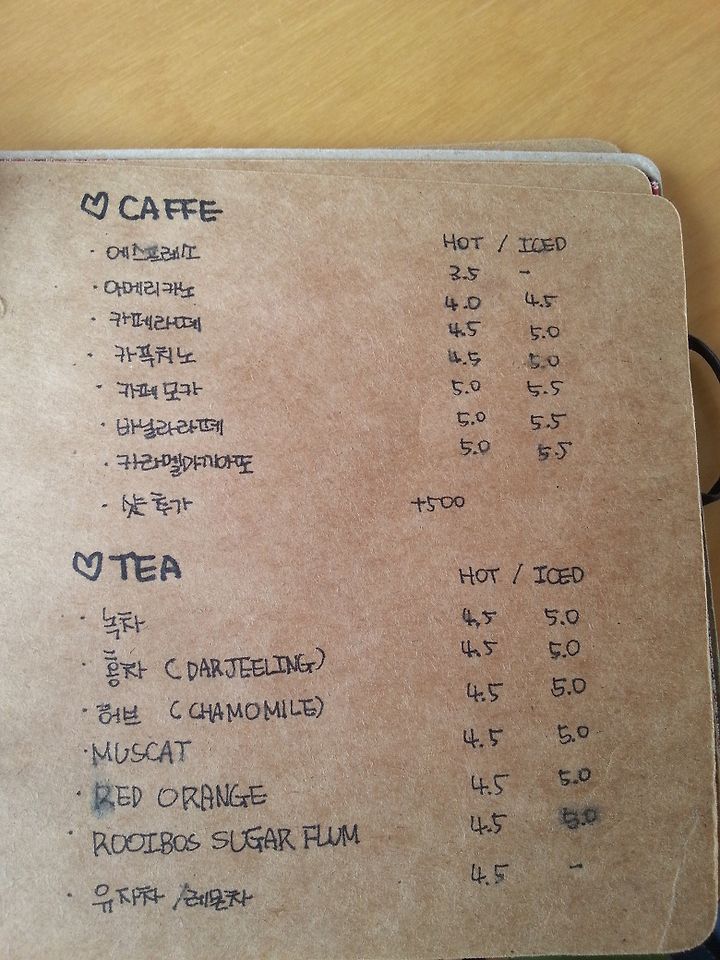 ♡ CAFFE
HOT / ICED
· 에스프레소 3.5 -
· 아메리카노 4.0 4.5
· 카페라떼 4.5 5.0
· 카푸치노 4.5 5.0
· 카페모카 5.0 5.5
· 바닐라라떼 5.0 5.5
· 카라멜마끼아또 5.0 5.5
· 샷추가 +500
♡ TEA
HOT / ICED
· 녹차 4.5 5.0
· 홍차 (DARJEELING) 4.5 5.0
· 허브 (CHAMOMILE) 4.5 5.0
· MUSCAT 4.5 5.0
· RED ORANGE 4.5 5.0
· ROOIBOS SUGAR FLUM 4.5 5.0
· 유자차 / 레몬차 4.5 -